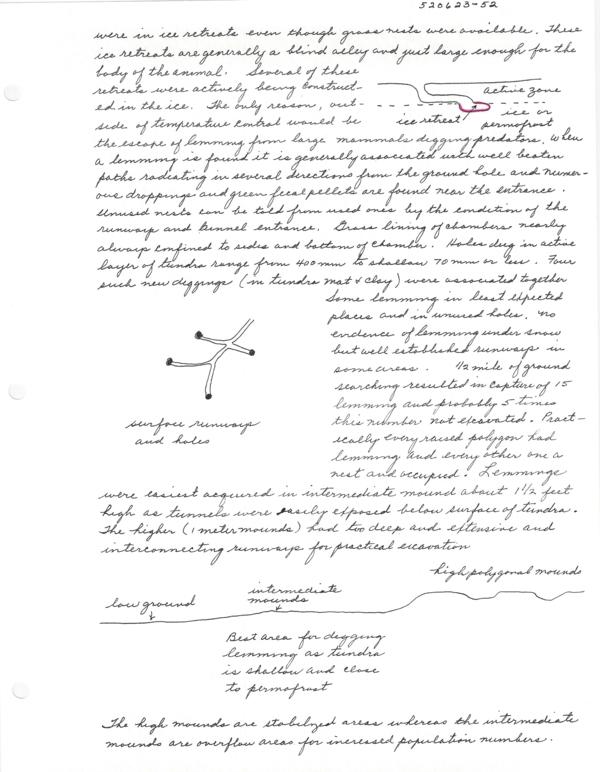 520623-52
were in ice retreats even though grass nests were available. These
ice retreats are generally a blind alley and just large enough for the
body of the animal. Several of these
retreats were actively being construct-
ed in the ice. The only reason, out-
side of temperature control would be
active zone
ice retreat
ice or
permafrost
the escape of lemming from large mammals digging predators. When
a lemming is found it is generally associated with well beaten
paths radiating in several directions from the ground hole and numer-
ous droppings and green fecal pellets are found near the entrance.
Unused nests can be told from used ones by the condition of the
runways and tunnel entrance. Grass lining of chambers nearly
always confined to sides and bottom of chamber. Holes dug in active
layer of tundra range from 400 mm to shallow 70 mm or less. Four
such new diggings (in tundra mat & clay) were associated together
Some lemming in least expected
places and in unused holes. no
evidence of lemming under snow
but well established runways in
some areas. 1/2 mile of ground
searching resulted in capture of 15
lemming and probably 5 times
this number not excavated. Pract-
ically every raised polygon had
lemming and every other one a
nest and occupied. Lemmings
surface runways
and holes
were easiest acquired in intermediate mound about 1 1/2 feet
high as tunnels were easily exposed below surface of tundra.
The higher (1 meter mounds) had too deep and extensive and
interconnecting runways for practical excavation
high polygonal mounds
intermediate
mounds
low ground
Best area for digging
lemming as tundra
is shallow and close
to permafrost
The high mounds are stabilized areas whereas the intermediate
mounds are overflow areas for incressed population numbers.